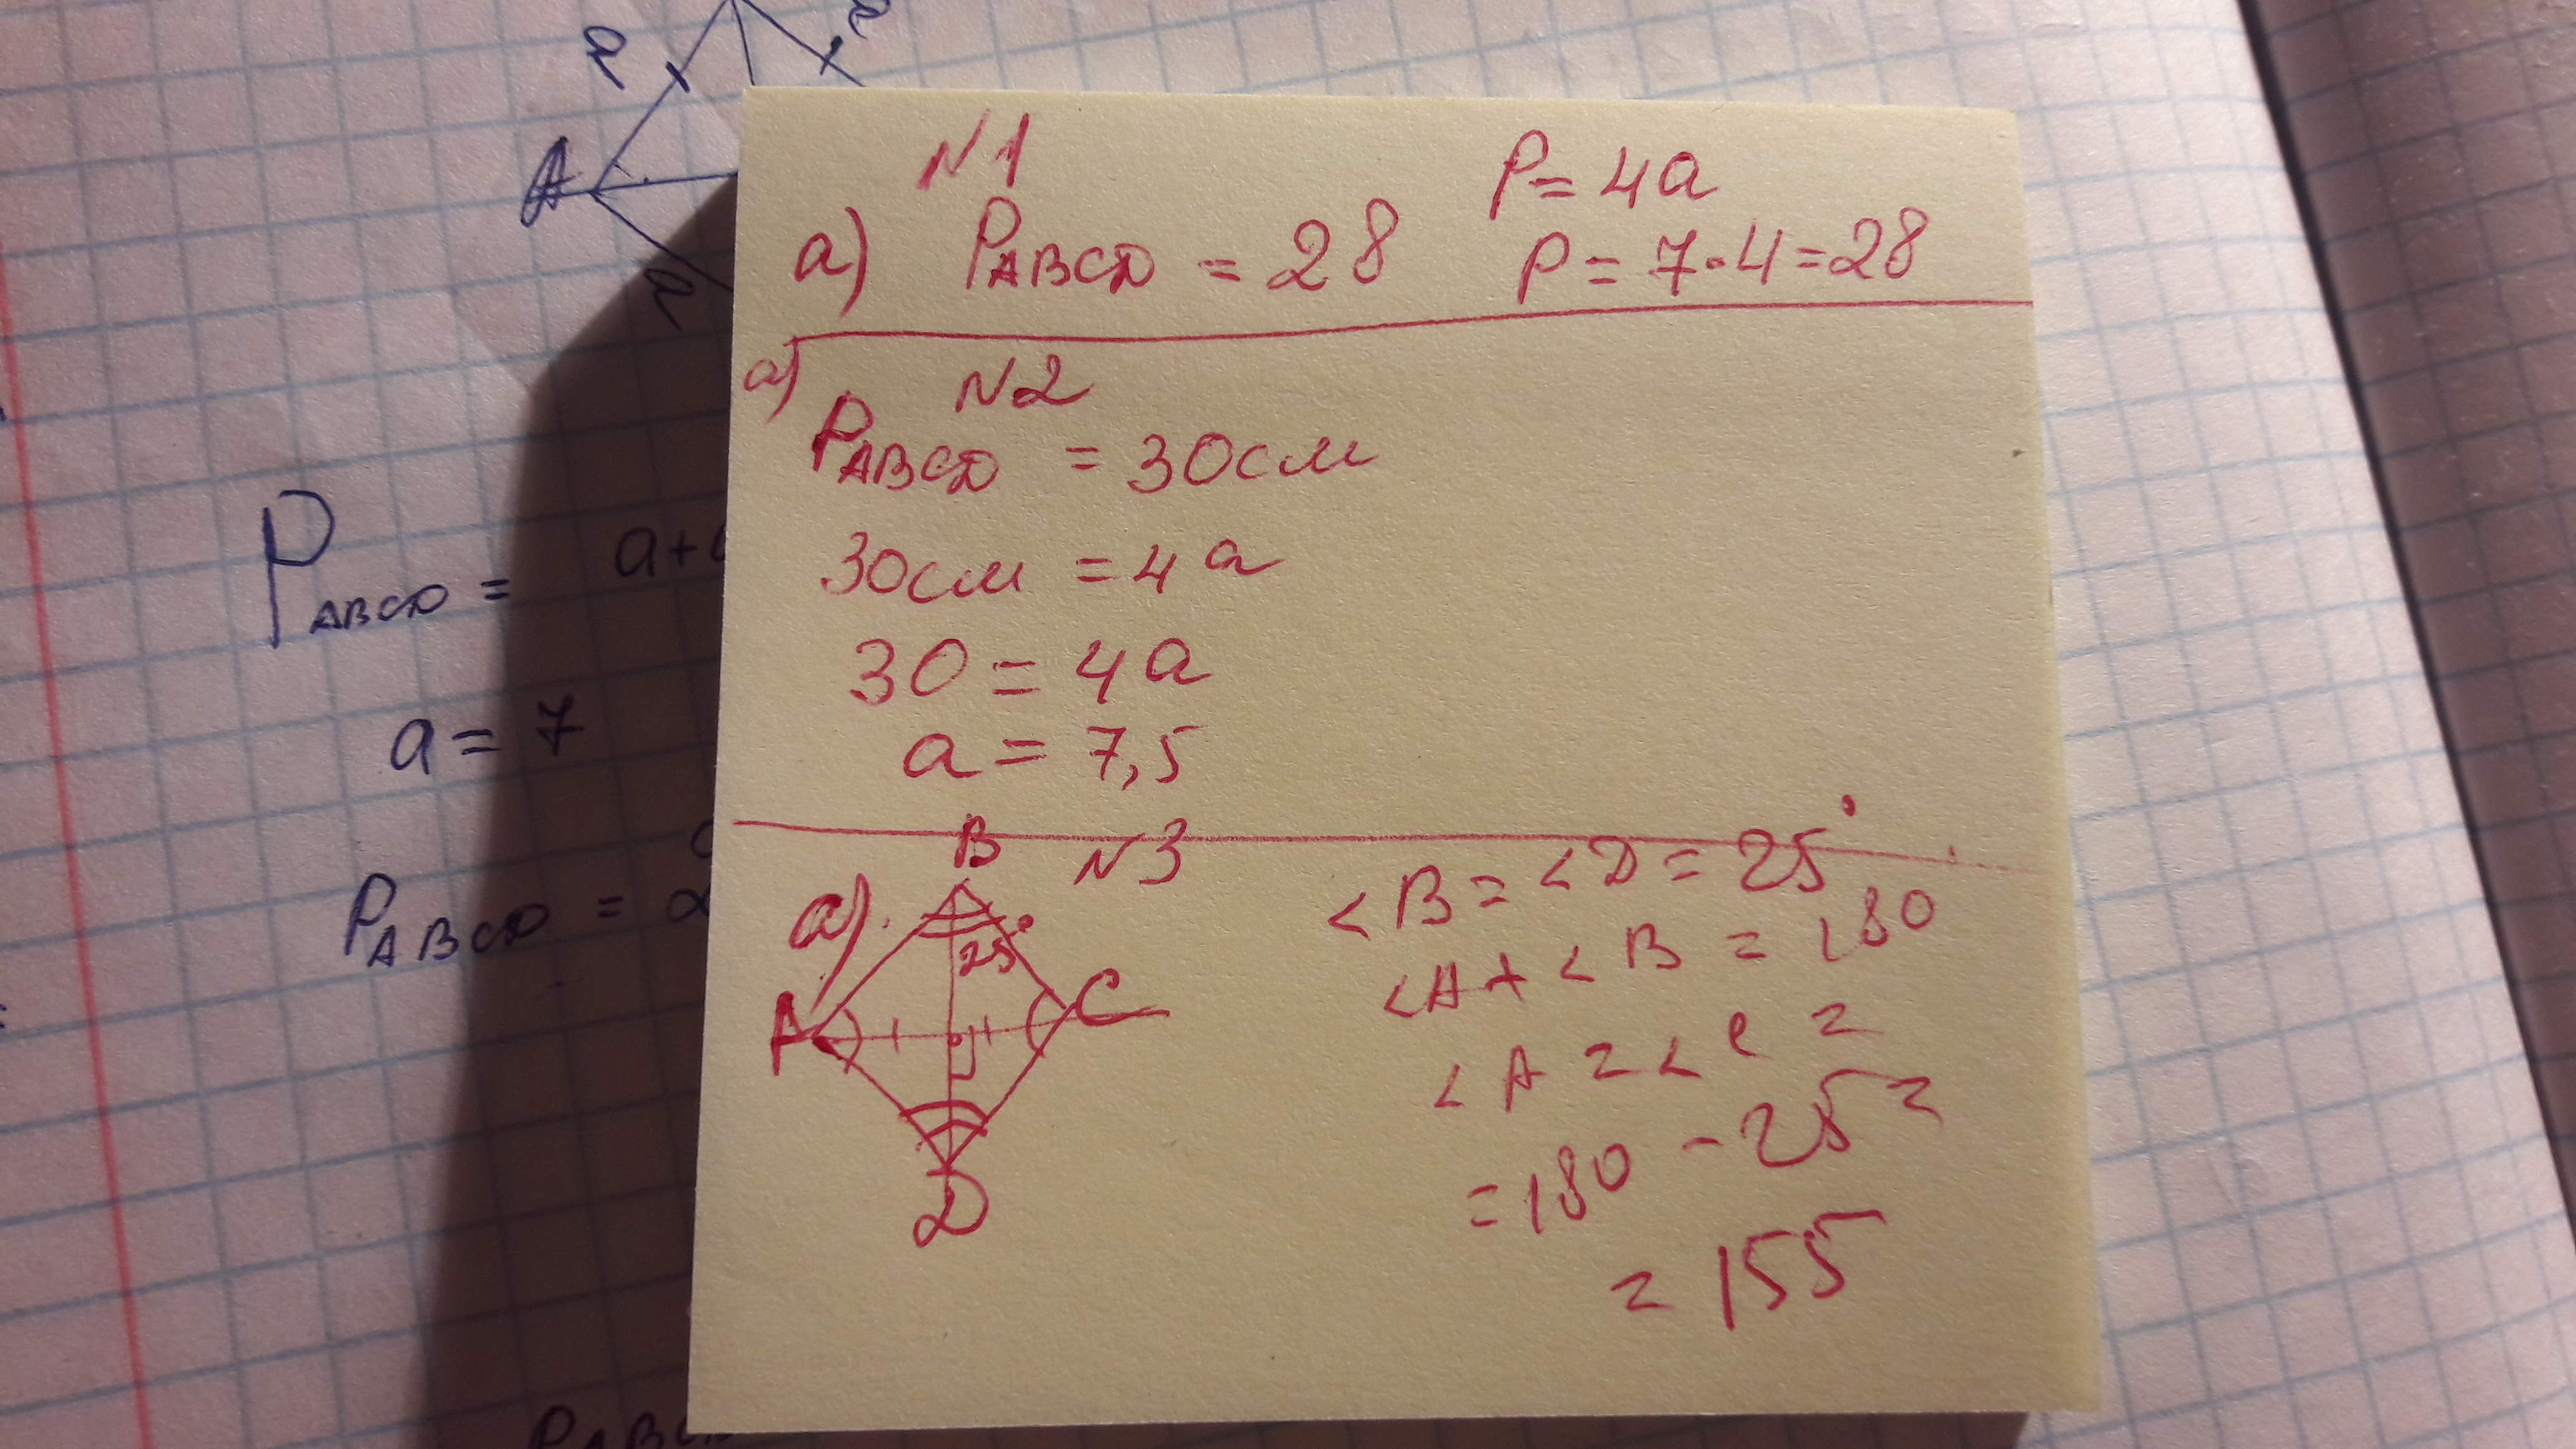 a
a
A
a
P ABCD =
a+
a = 7
P ABCD = 2
P ABCD
N1
P = 4a
а) P ABCD = 28
P = 7·4=28
а) N2
P ABCD = 30см
30см = 4a
30 = 4a
a = 7,5
N3
а).
B
25°
A
C
D
<B = <D = 25°
<A + <B = 180
<A = <C =
= 180 - 25 =
= 155